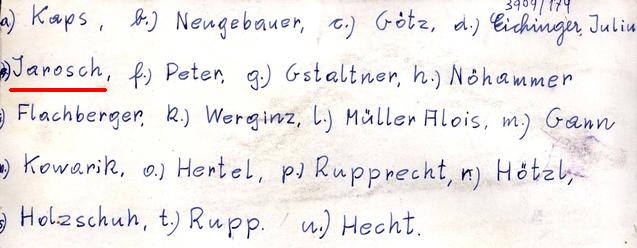 3909/174
a) Kaps, b.) Neugebauer, c.) Götz, d.) Eichinger, Julius
e) Jarosch, f.) Peter, g.) Gstaltner, h.) Nöhammer
Flachberger, k.) Werginz, l.) Müller Alois, m.) Gann
n) Kowarik, o.) Hertel, p.) Rupprecht, r.) Hötzl,
s) Holzschuh, t.) Rupp. u.) Hecht.